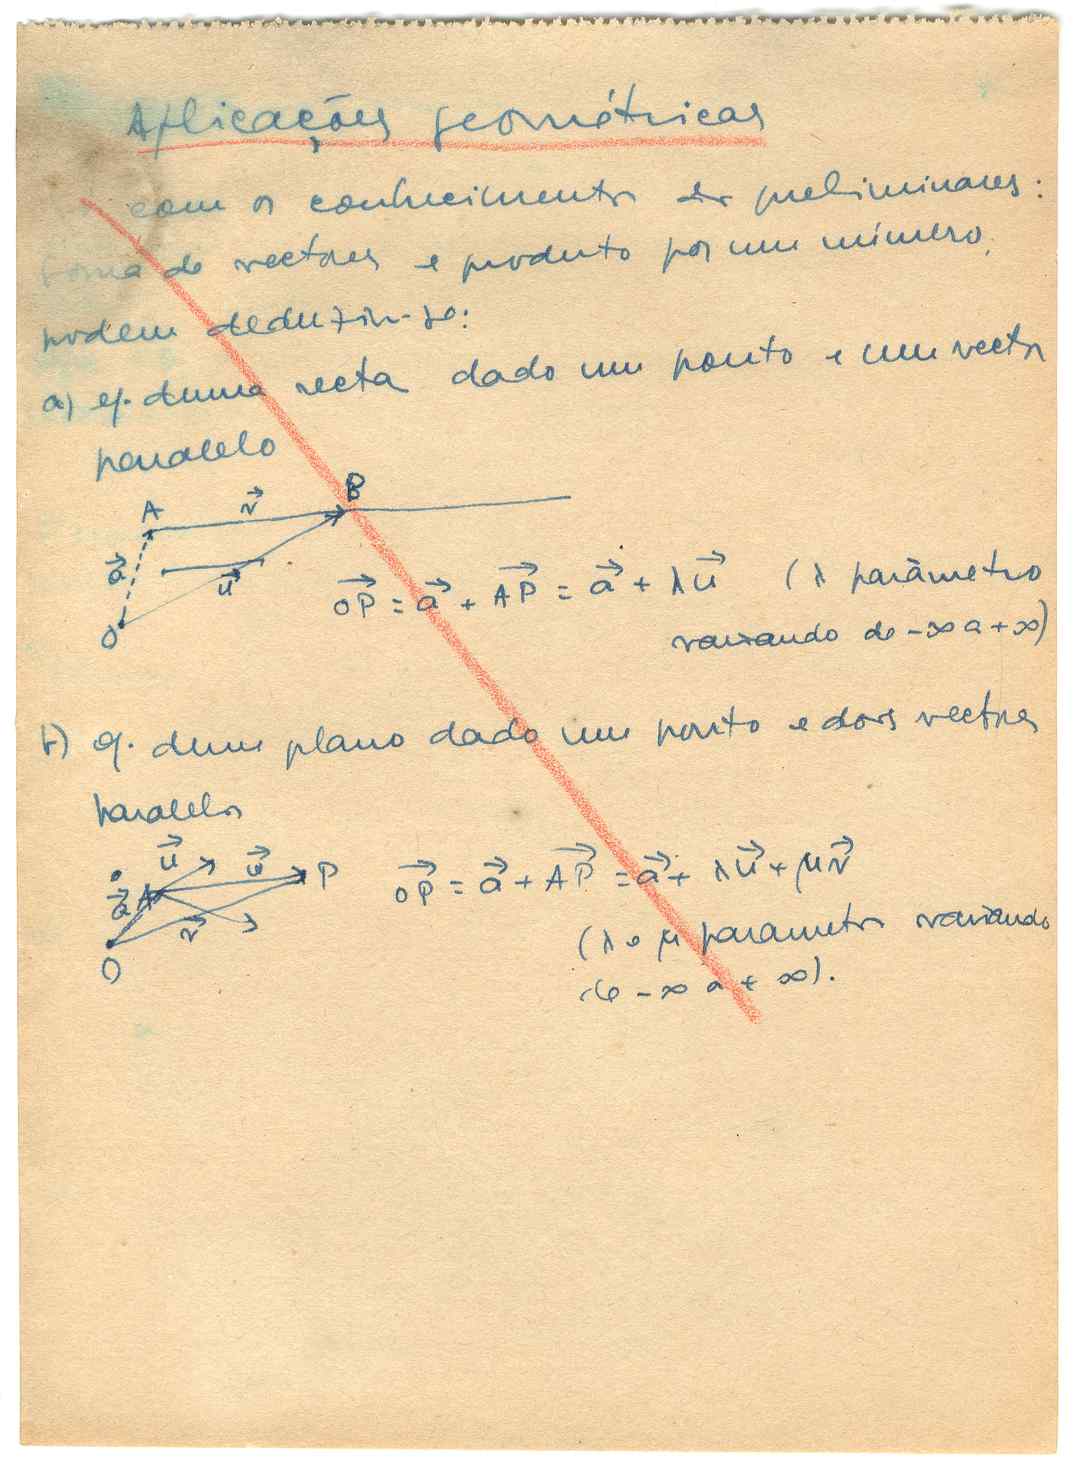 Aplicações geométricas
com os conhecimentos dos preliminares:
soma de vectores e produto por um número,
podem deduzir-se:
a) eq. duma recta dado um ponto e um vector
paralelo
A v⃗ P
a⃗ u⃗
O
O⃗P⃗ = a⃗ + A⃗P⃗ = a⃗ + λu⃗ (λ parâmetro
variando de -∞ a +∞)
b) eq. dum plano dado um ponto e dois vectores
paralelos
u⃗ P
a⃗ A v⃗
O
O⃗P⃗ = a⃗ + A⃗P⃗ = a⃗ + λu⃗ + μv⃗
(λ e μ parametros variando
de -∞ a +∞).